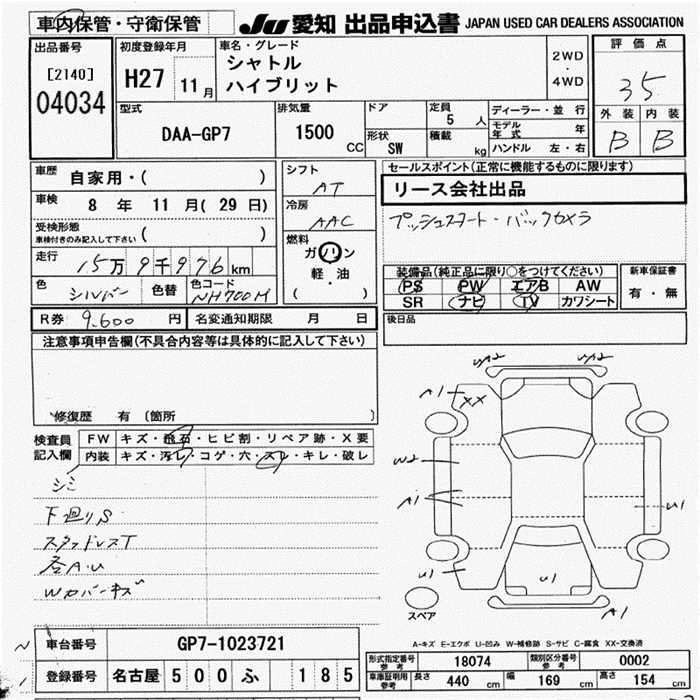 車内保管・守衛保管
JU 愛知 出品申込書 JAPAN USED CAR DEALERS ASSOCIATION
出品番号
[2140]
04034
初度登録年月
H27 11月
車名・グレード
シャトル
ハイブリット
2WD
・
4WD
評価点
3.5
外装 内装
B B
型式
DAA-GP7
排気量
1500 CC
ドア
形状 SW
定員 5 人
積載 kg
ディーラー・並行
モデル年式 年
ハンドル 左・右
車歴 自家用・( )
車検 8 年 11 月( 29 日)
受検形態
車検付きのみ記入して下さい ( )
走行 15万9千976km
色 シルバー 色替 色コード NH700M
シフト
AT
冷房
AAC
燃料
ガソリン
軽・油
( )
セールスポイント(正常に機能するものに限ります)
リース会社出品
プッシュスタート・バックカメラ
装備品(純正品に限り○をつけてください)
PS PW エアB AW
SR ナビ TV カワシート
新車保証書
有・無
R券 9.600 円 名変通知期限 月 日
後日品
注意事項申告欄(不具合内容等は具体的に記入して下さい)
修復歴 有〔箇所 〕
検査員記入欄
FW キズ・飛石・ヒビ割・リペア跡・X要
内装 キズ・汚レ・コゲ・穴・スレ・キレ・破レ
シミ
下廻りS
スタッドレスT
各A.U
Wカバーキズ
UA2 UA2
A1 XX
W2
A1
U1
U1
U1
A1
スペア
A-キズ E-エクボ U-凹み W-補修跡 S-サビ C-腐食 XX-交換済
車台番号 GP7-1023721
登録番号 名古屋 500 ふ 185
形式指定番号 参考 18074 類別区分番号 参考 0002
車庫証明用参考 長さ 440 cm 幅 169 cm 高さ 154 cm